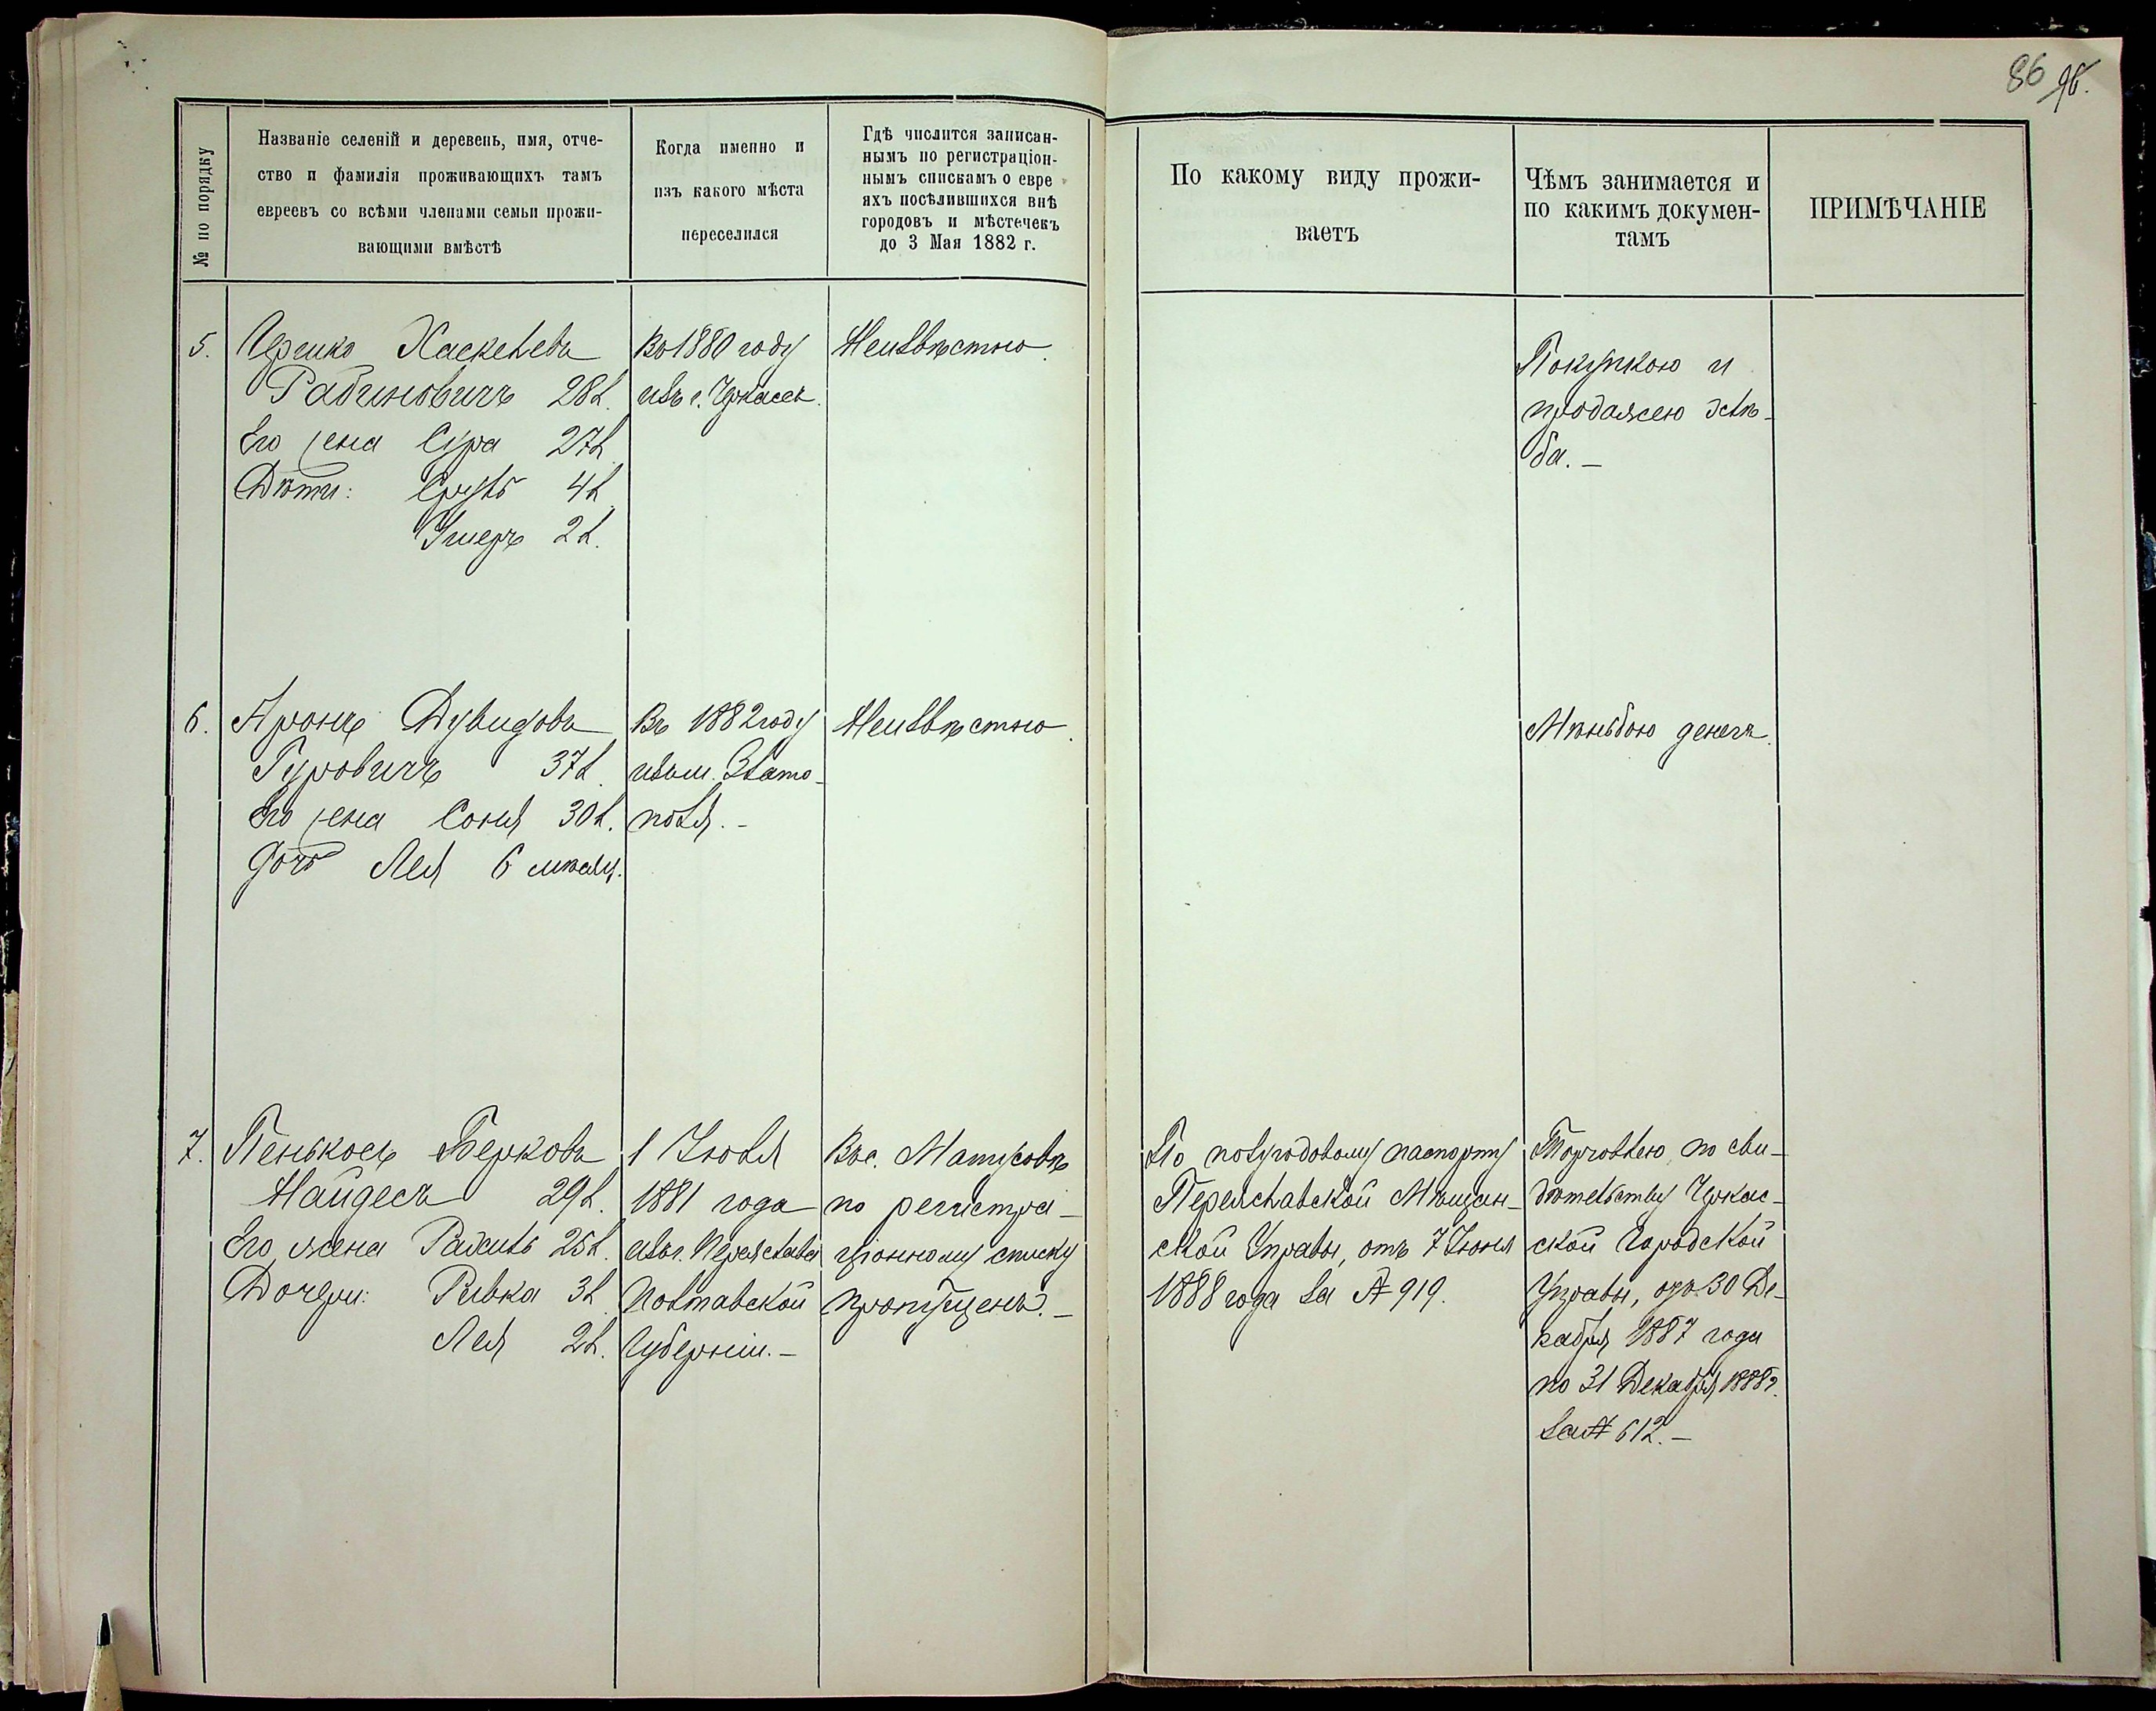 86 96.
№ по порядку
Названіе селеній и деревень, имя, отче-
ство и фамилія проживающихъ тамъ
евреевъ со всѣми членами семьи прожи-
вающими вмѣстѣ
Когда именно и
изъ какого мѣста
переселился
Гдѣ числится записан-
нымъ по регистраціон-
нымъ спискамъ о евре
яхъ посѣлившихся внѣ
городовъ и мѣстечекъ
до 3 Мая 1882 г.
По какому виду прожи-
ваетъ
Чѣмъ занимается и
по какимъ докумен-
тамъ
ПРИМѢЧАНІЕ
5.
Хаскелевъ
Рабиновичъ 28 л.
Его жена Сура 27 л.
Дѣти: Сруль 4 л.
Ушеръ 2 л.
Въ 1880 году
изъ г. Черкасъ.
Неизвѣстно.
Покупкою и
продажею хлѣ-
ба. —
6.
Аронъ Дувидовъ
Гуровичъ 37 л.
Его жена Соня 30 л.
Дочь Лея 6 мѣсяц.
Въ 1882 году
изъ м. Злато-
поля. —
Неизвѣстно.
Мѣньбою денегъ.
7.
Пенькосъ Берковъ
Найдесъ 29 л.
Его жена Рахиль 25 л.
Дочери: Ривка 3 л.
Лея 2 л.
1 Іюля
1881 года
изъ г. Переяслава
Полтавской
Губерніи. —
Въ с. Матусовѣ
по регистра-
ціонному списку
пропущенъ. —
По полугодовому паспорту
Переяславской Мѣщан-
ской Управы, отъ 7 Іюня
1888 года за № 919.
Торговлею по сви-
дѣтельству Черкас-
ской Городской
Управы, отъ 30 Де-
кабря 1887 года
по 31 Декабря 1888 г.
за № 612. —